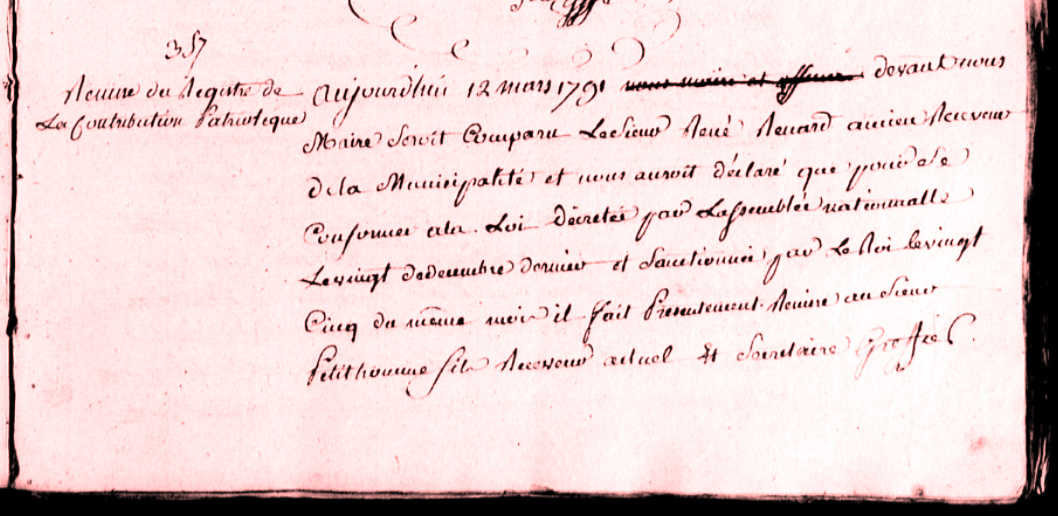 357
Remise du Registre de
La Contribution Patriotique
aujourdhui 12 mars 1791 nous maire et officiers devant nous
Maire Seroit Comparu Le Sieur René Renard ancien Receveur
de la Municipalité et nous auroit déclaré que pour se
Conformer ala Loi décretée par Lassemblée nationnalle
Le vingt dedecembre dernier et Sanctionnée par Le Roi le vingt
Cinq du même mois il fait Presentement Remise au Sieur
Petithomme fils Receveur actuel Et Secretaire Greffier